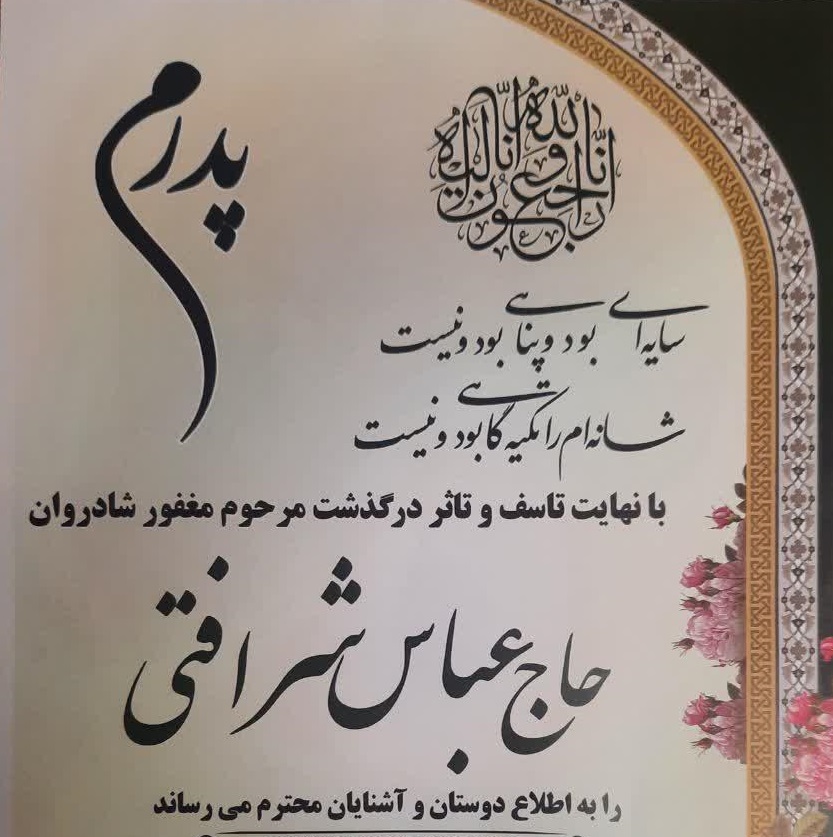 انا لله و انا الیه راجعون
پدرم
سایه‌ای بود و پناهی بود و نیست
شانه‌ام را تکیه گاهی بود و نیست
با نهایت تاسف و تاثر درگذشت مرحوم مغفور شادروان
حاج عباس شرافتی
را به اطلاع دوستان و آشنایان محترم می رساند